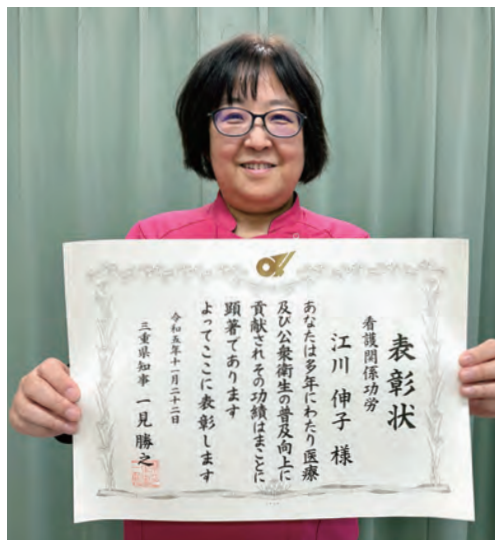 表彰状
看護関係功労
江川 伸子 様
あなたは多年にわたり医療
及び公衆衛生の普及向上に
貢献されその功績はまことに
顕著であります
よってここに表彰します
令和五年十一月二十二日
三重県知事 一見勝之